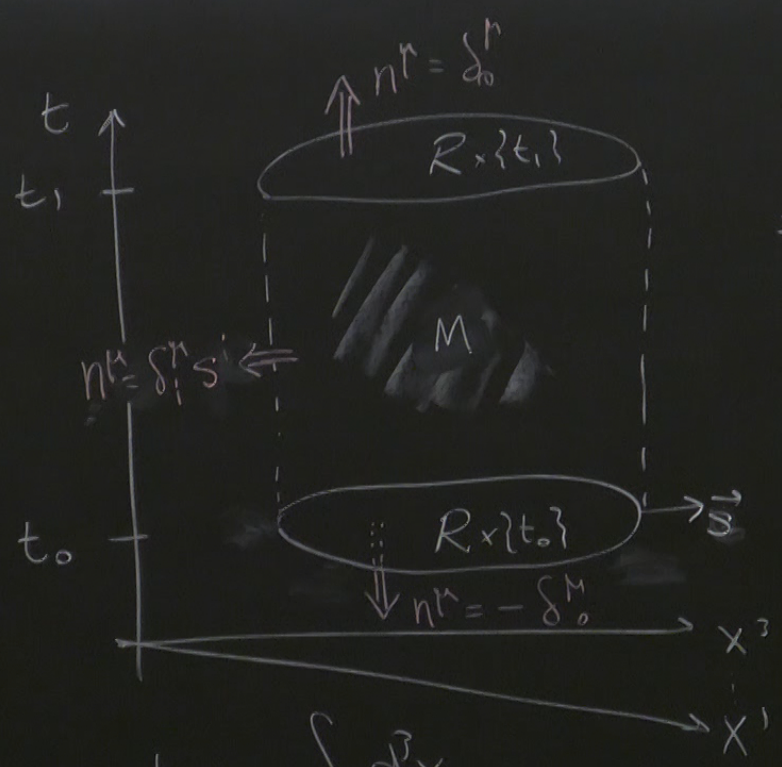 n^μ = δ^μ_0
t
R×{t₁}
t₁
M
n^μ = δ^μ_i s^i
R×{t₀}
s⃗
t₀
n^μ = - δ^μ_0
x³
x¹
∫ d³x